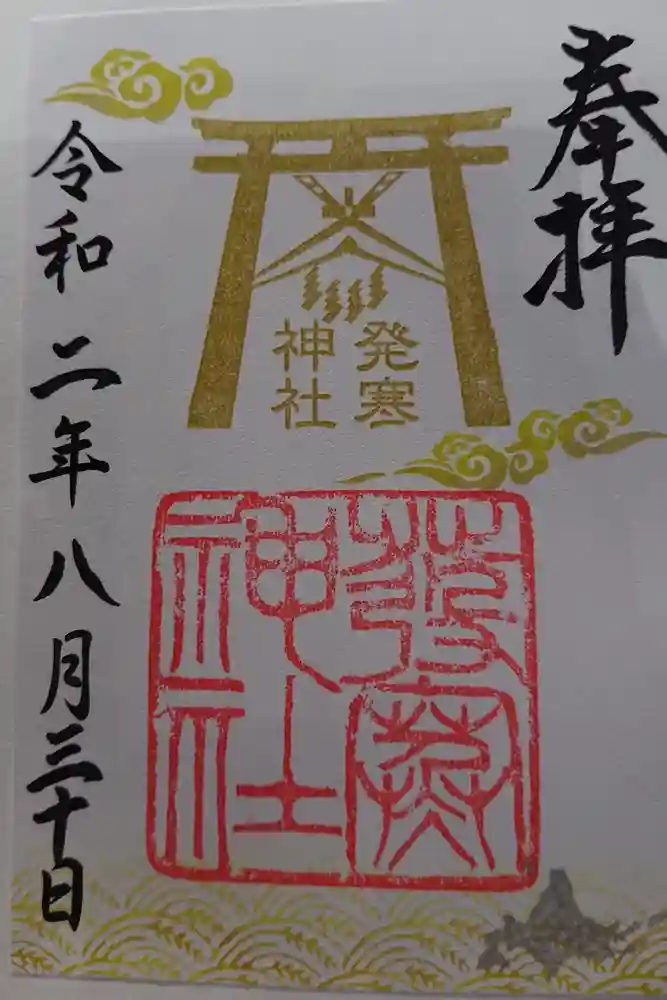 奉拝
発寒
神社
發寒
神社
令和二年八月三十日